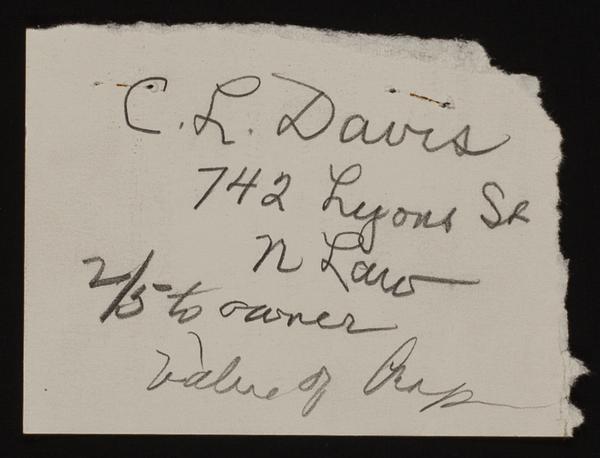 C. L. Davis
742 Lyons St
N Law
2/5 to owner
Value of Crop